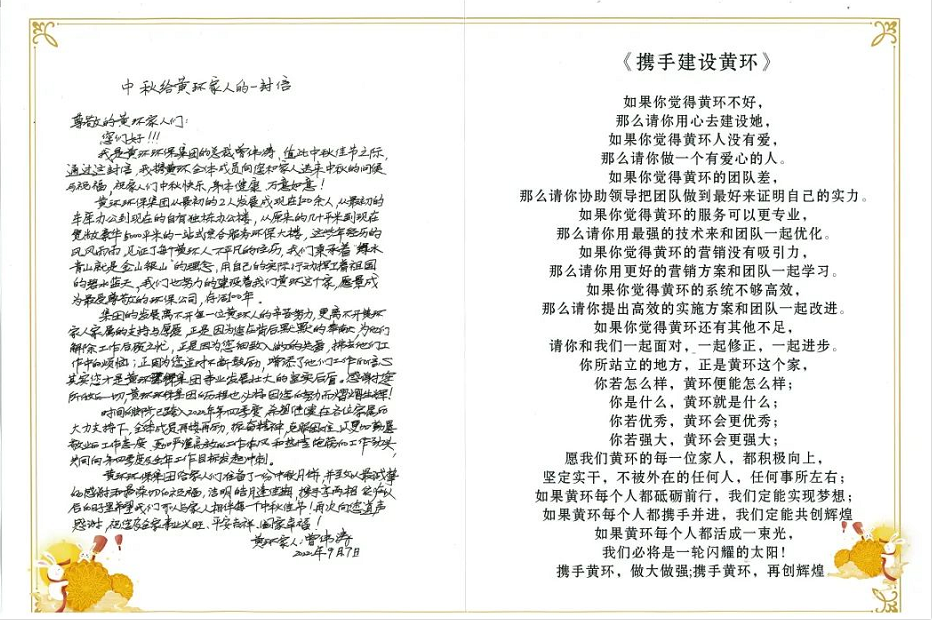 中秋给黄环家人的一封信
尊敬的黄环家人们：
您们好!!!
我是黄环环保集团的总裁曾伟涛，值此中秋佳节之际，
通过这封信，我携黄环全体成员向您和家人送来中秋的问候
与祝福，祝家人们中秋快乐，身体健康，万事如意！
黄环环保集团从最初的2人发展成现在100余人，从最初的
车库办公到现在的自有独栋办公楼，从原来的几十平米到现在
宽敞豪华5000平米的一站式综合服务环保大楼，这些年经历的
风风雨雨，见证了每个黄环人不平凡的经历，我们秉承着"绿水
青山就是金山银山"的理念，用自己的实际行动捍卫着祖国
的碧水蓝天，我们也努力的建设着我们黄环这个家，愿景成
为最受尊敬的环保公司，存活100年。
集团的发展离不开每一位黄环人的辛苦努力，更离不开黄环
家人家属的支持与厚爱，正是因为您在背后默默的奉献，为他们
解除工作后顾之忧，正是因为您细致入微的关爱，拂去他们工
作中的烦恼；正因为您近时不断鼓励，增添了他们工作的信心
其实您才是黄环集团事业发展壮大的坚实后盾。感谢您
所做的一切，黄环环保集团的历程也必将因您的努力而熠熠生辉！
时间的脚步已踏入2022年第四季度，希望继续在各位家属的
大力支持下，全体成员再接再励，振奋精神，克服困难，以更加勤恳
敬业的工作态度、更加严谨高效的工作作风和热情饱满的工作劲头
共同向第四季度及全年工作目标发起冲刺。
黄环环保集团给家人们准备了一份中秋月饼，并至以最诚挚
的感谢和最深切的祝福，
后的时光希望我们可以与家人相伴每一个中秋佳节！再次向您道声
感谢，祝您及全家事业兴旺、平安吉祥、阖家幸福！
黄环家人：曾伟涛
2022年9月7日
《携手建设黄环》
如果你觉得黄环不好，
那么请你用心去建设她，
如果你觉得黄环人没有爱，
那么请你做一个有爱心的人。
如果你觉得黄环的团队差，
那么请你协助领导把团队做到最好来证明自己的实力。
如果你觉得黄环的服务可以更专业，
那么请你用最强的技术来和团队一起优化。
如果你觉得黄环的营销没有吸引力，
那么请你用更好的营销方案和团队一起学习。
如果你觉得黄环的系统不够高效，
那么请你提出高效的实施方案和团队一起改进。
如果你觉得黄环还有其他不足，
请你和我们一起面对，一起修正，一起进步。
你所站立的地方，正是黄环这个家，
你若怎么样，黄环便能怎么样；
你是什么，黄环就是什么；
你若优秀，黄环会更优秀；
你若强大，黄环会更强大；
愿我们黄环的每一位家人，都积极向上，
坚定实干，不被外在的任何人，任何事所左右；
如果黄环每个人都砥砺前行，我们定能实现梦想；
如果黄环每个人都携手并进，我们定能共创辉煌
如果黄环每个人都活成一束光，
我们必将是一轮闪耀的太阳！
携手黄环，做大做强;携手黄环，再创辉煌